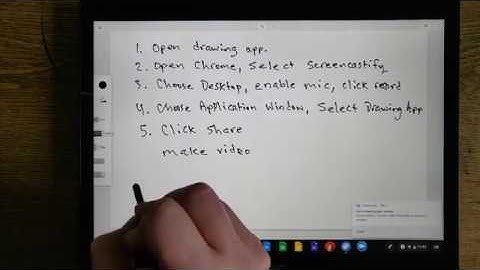 1. Open drawing app.
2. Open Chrome, Select Screencastify
3. Choose Desktop, enable mic, click record
4. Choose Application Window, Select Drawing App
5. Click Share
make video